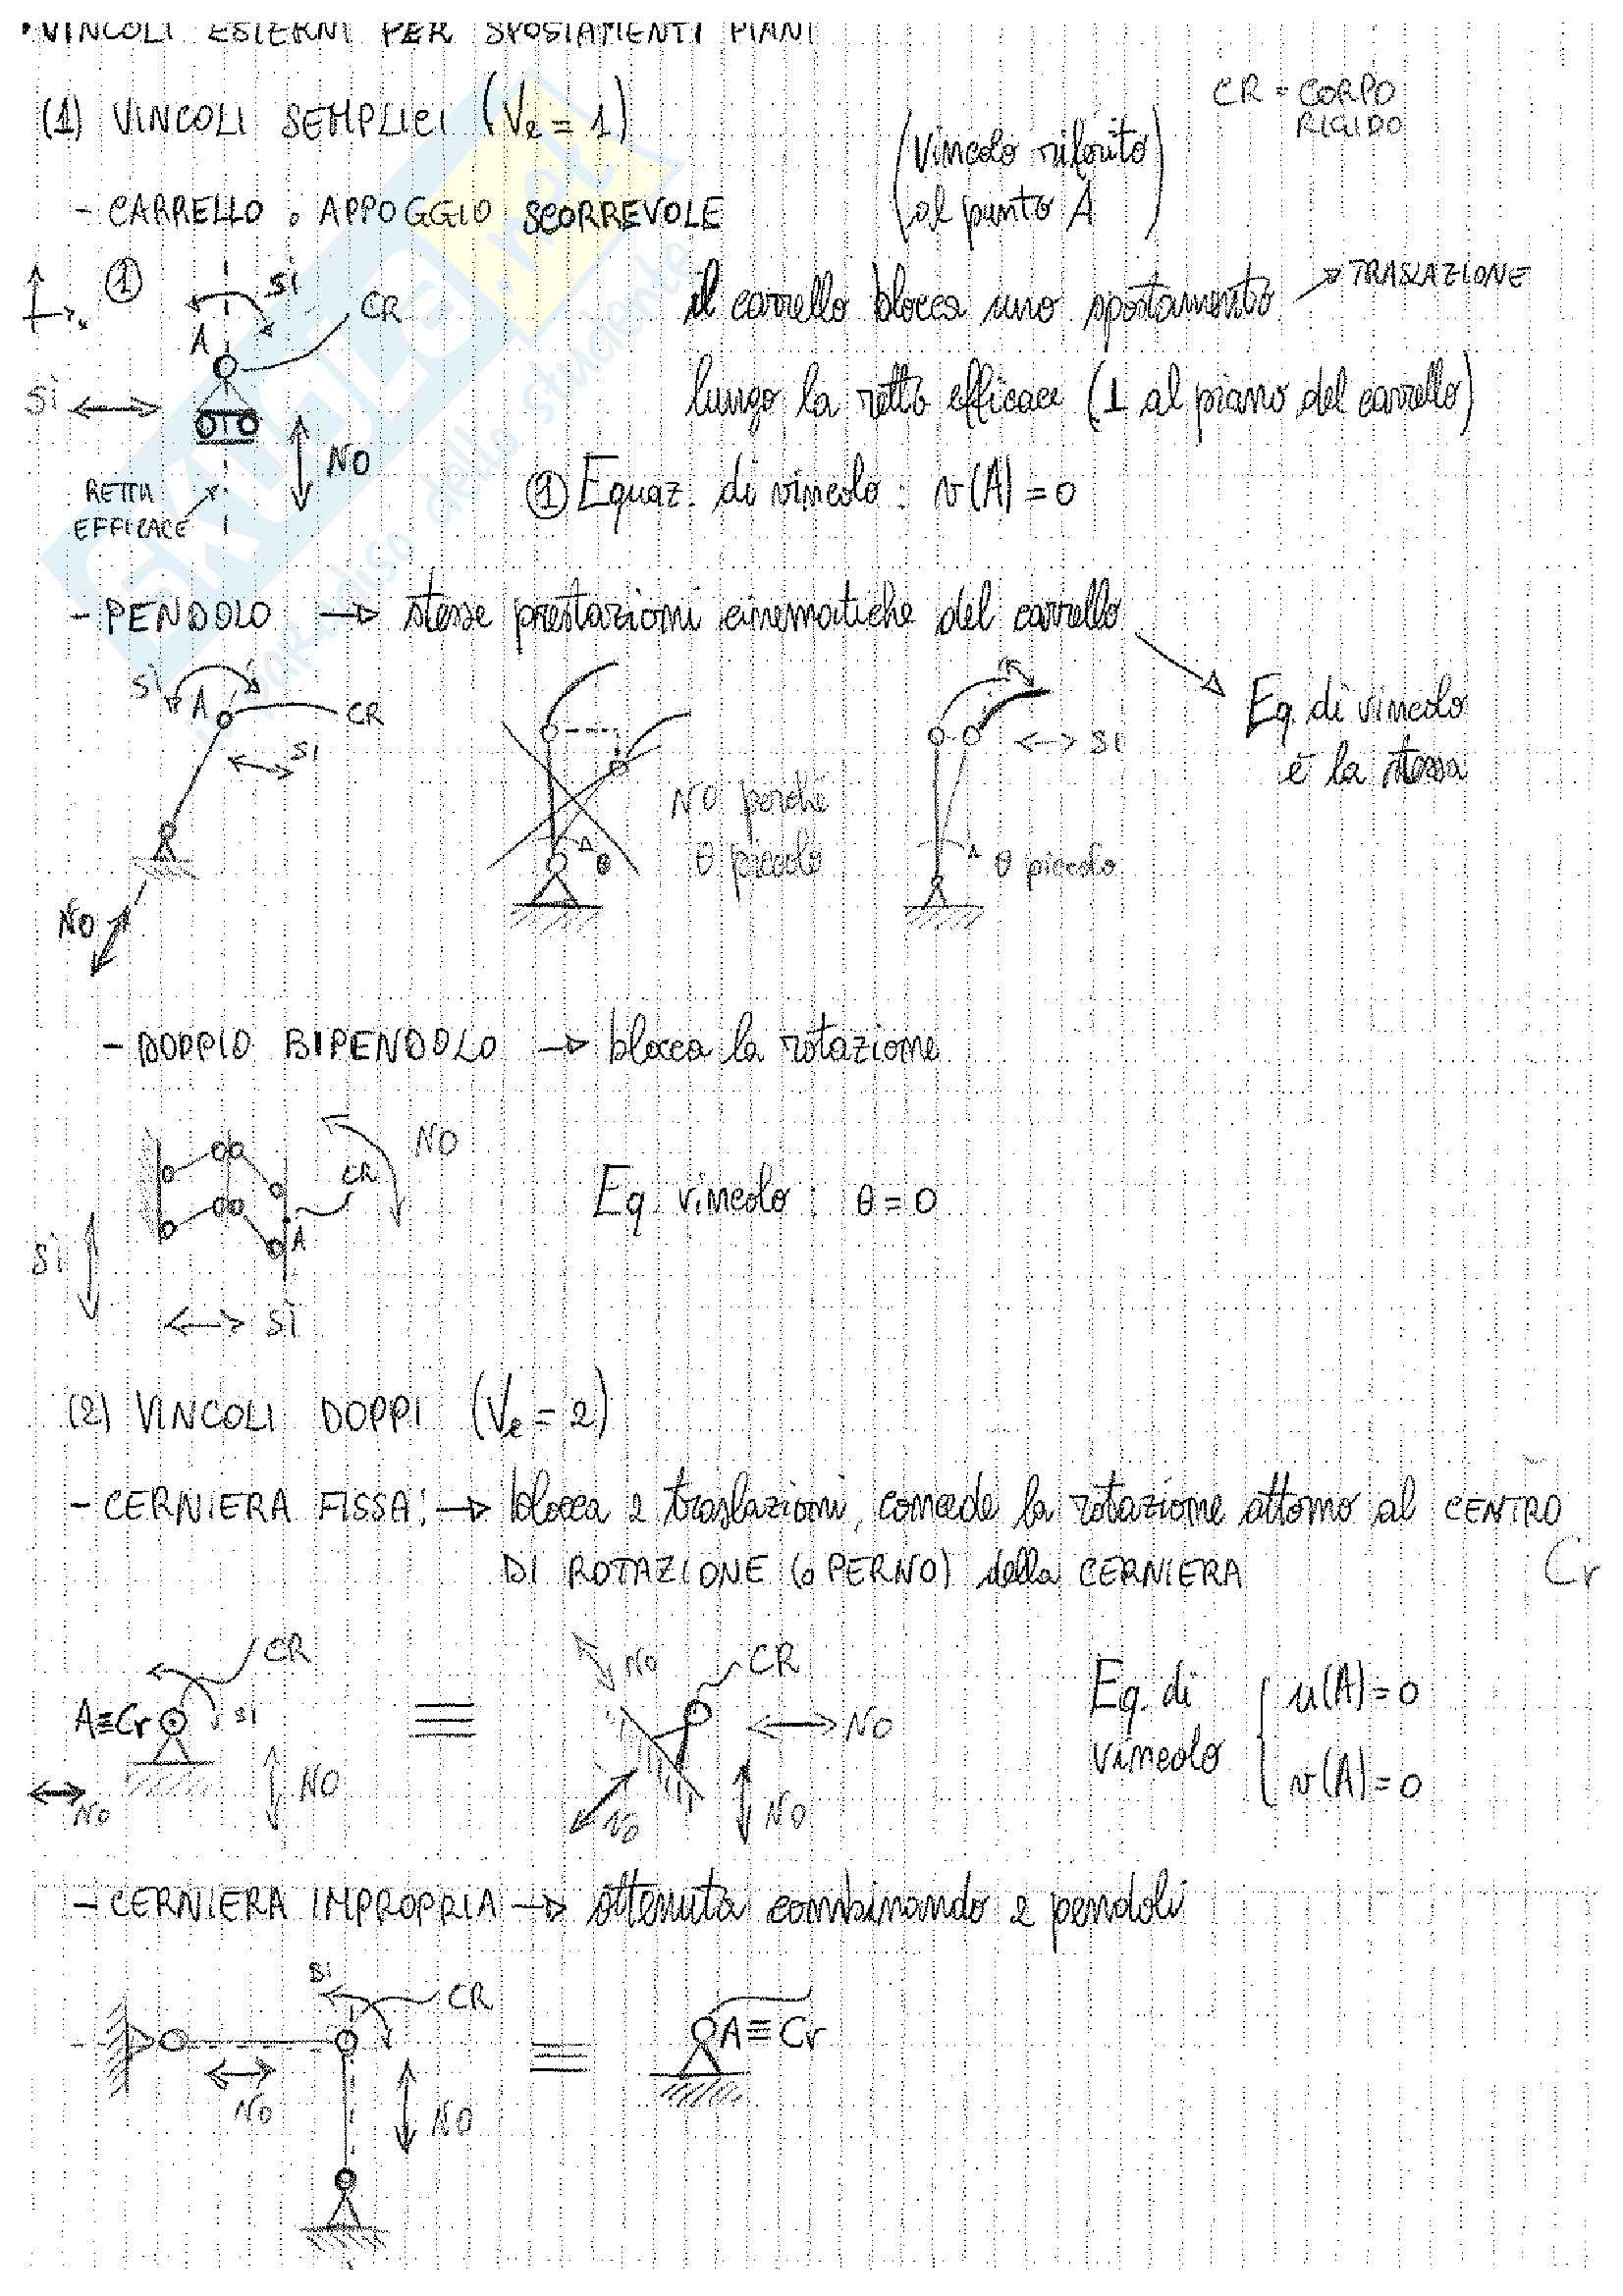 • VINCOLI ESTERNI PER SPOSTAMENTI PIANI
CR = CORPO
RIGIDO
(1) VINCOLI SEMPLICI (Ve = 1)
(Vincolo riferito
al punto A)
- CARRELLO o APPOGGIO SCORREVOLE
① SI
CR
A
SI
NO
RETTA
EFFICACE
x
il carrello blocca uno spostamento → TRASLAZIONE
lungo la retta efficace (⊥ al piano del carrello)
① Equaz. di vincolo: v(A) = 0
- PENDOLO → stesse prestazioni cinematiche del carrello
Eq. di vincolo
è la stessa
SI
A
CR
SI
NO
NO perché
θ piccolo
θ
SI
θ piccolo
- DOPPIO BIPENDOLO → blocca la rotazione
NO
CR
A
SI
SI
Eq. vincolo: θ = 0
(2) VINCOLI DOPPI (Ve = 2)
- CERNIERA FISSA: → blocca 2 traslazioni, concede la rotazione attorno al CENTRO
DI ROTAZIONE (o PERNO) della CERNIERA Cr
CR
A≡Cr
SI
NO
NO
≡
NO
CR
NO
NO
NO
Eq. di
vincolo
{ u(A) = 0
v(A) = 0
- CERNIERA IMPROPRIA → ottenuta combinando 2 pendoli
SI
CR
NO
NO
≡
A≡Cr
SKUOLA